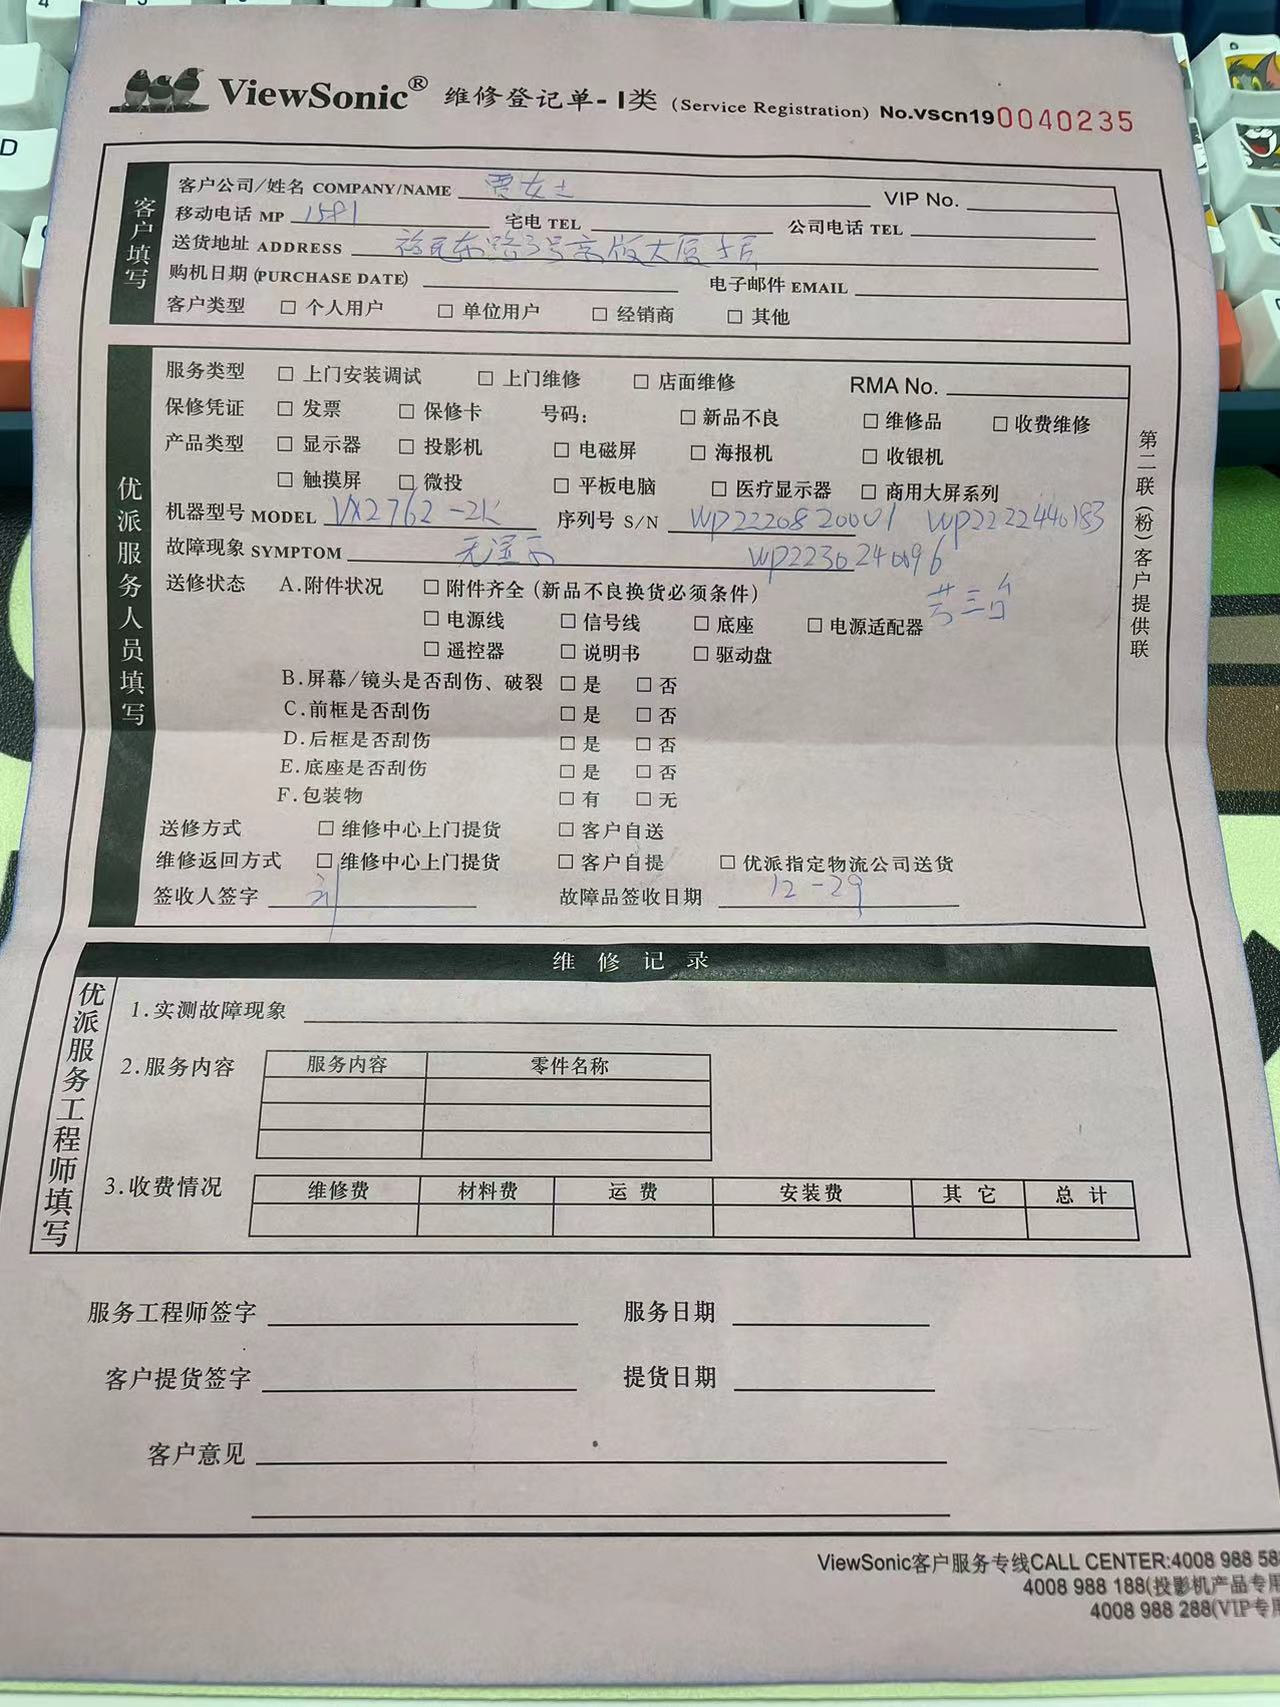 ViewSonic® 维修登记单-I类 (Service Registration) No.vscn190040235
客户填写
客户公司/姓名 COMPANY/NAME 女士 VIP No.
移动电话 MP 1581 宅电 TEL 公司电话 TEL
送货地址 ADDRESS 裕民东路3号京版大厦
购机日期 (PURCHASE DATE) 电子邮件 EMAIL
客户类型 □ 个人用户 □ 单位用户 □ 经销商 □ 其他
优派服务人员填写
服务类型 □ 上门安装调试 □ 上门维修 □ 店面维修 RMA No.
保修凭证 □ 发票 □ 保修卡 号码: □ 新品不良 □ 维修品 □ 收费维修
产品类型 □ 显示器 □ 投影机 □ 电磁屏 □ 海报机 □ 收银机
□ 触摸屏 □ 微投 □ 平板电脑 □ 医疗显示器 □ 商用大屏系列
机器型号 MODEL VX2762-2K 序列号 S/N WP2220820001 WP2222440183
故障现象 SYMPTOM 无显示 WP2230240096
共三台
送修状态 A.附件状况 □ 附件齐全 (新品不良换货必须条件)
□ 电源线 □ 信号线 □ 底座 □ 电源适配器
□ 遥控器 □ 说明书 □ 驱动盘
B.屏幕/镜头是否刮伤、破裂 □ 是 □ 否
C.前框是否刮伤 □ 是 □ 否
D.后框是否刮伤 □ 是 □ 否
E.底座是否刮伤 □ 是 □ 否
F.包装物 □ 有 □ 无
送修方式 □ 维修中心上门提货 □ 客户自送
维修返回方式 □ 维修中心上门提货 □ 客户自提 □ 优派指定物流公司送货
签收人签字 刘 故障品签收日期 12-29
第二联(粉)客户提供联
维修记录
优派服务工程师填写
1.实测故障现象
2.服务内容 服务内容 零件名称
3.收费情况 维修费 材料费 运费 安装费 其它 总计
服务工程师签字 服务日期
客户提货签字 提货日期
客户意见
ViewSonic客户服务专线CALL CENTER:4008 988 58
4008 988 188(投影机产品专用
4008 988 288(VIP专用